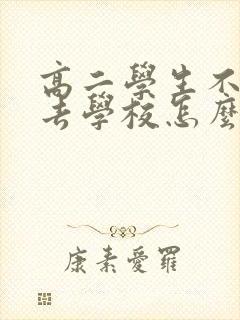 高二學生不
去學校怎麼
康素愛羅